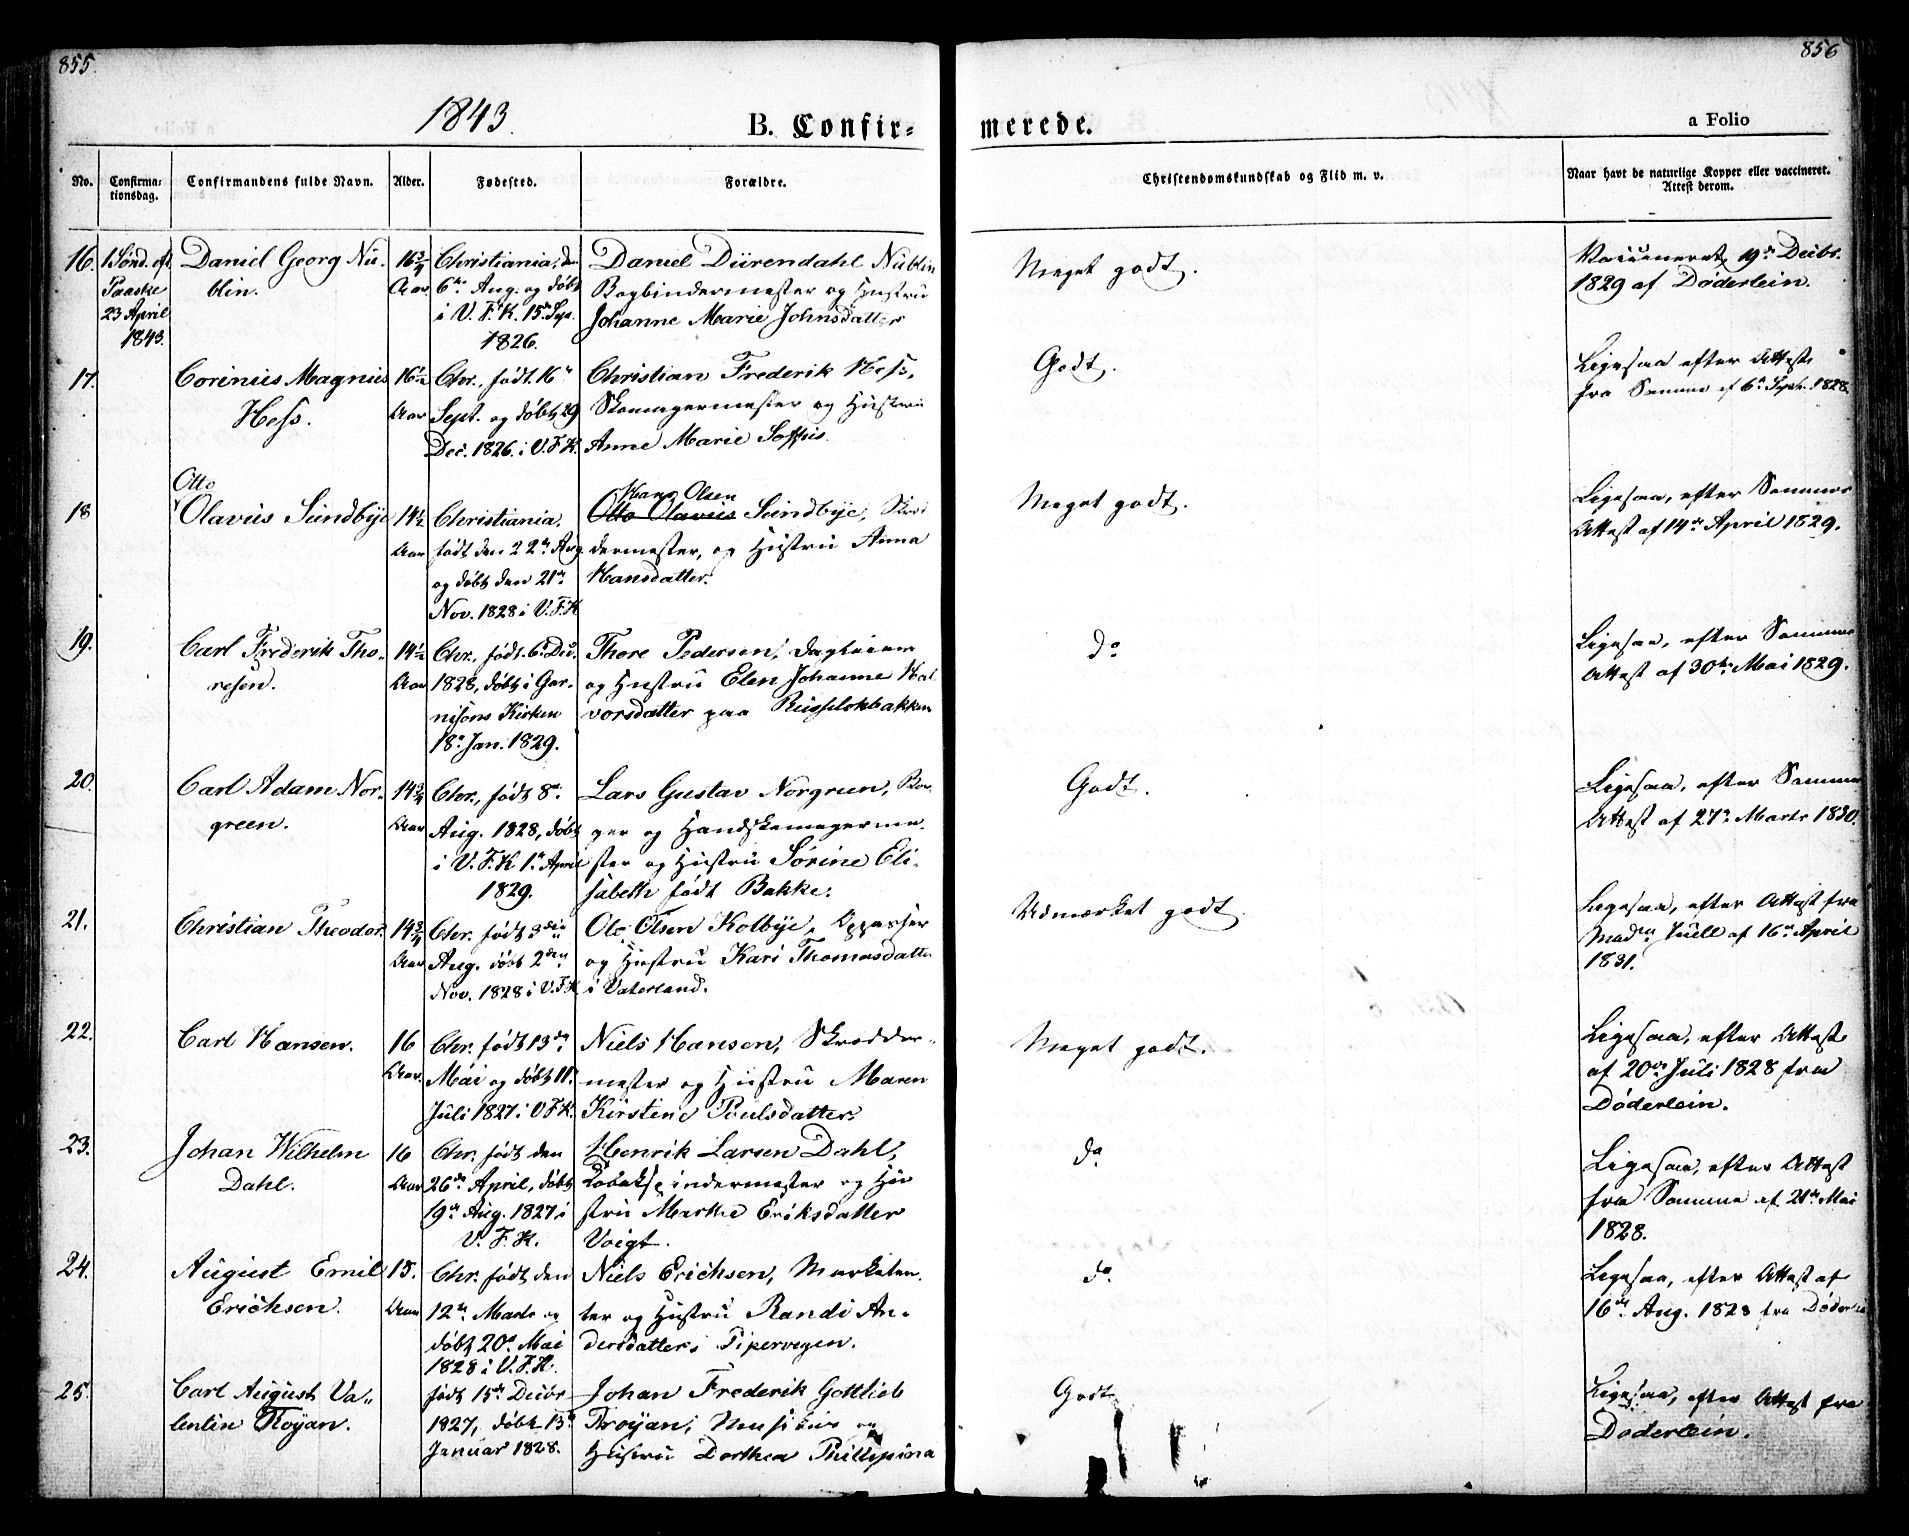 855.
856
1843.
B. Confir-
merede.
a Folio
No.
Confirma-
tionsdag.
Confirmandens fulde Navn.
Alder.
Fødested.
Forældre.
Christendomskundskab og Flid m. v.
Naar havt de naturlige Kopper eller vaccineret.
Attest derom.
16.
1 Sønd. eft.
Paaske
23 April
1843.
Daniel Georg Nü-
blin.
16 3/4
Aar.
Christiania, den
6te Aug. og døbt
i V. F. K. 15de Sep.
1826.
Daniel Dürendahl Nüblin
Bogbindermester og Hustru
Johanne Marie Johnsdatter
Meget godt.
Vaccineret 19de Decbr.
1829 af Døderlein.
17.
Corinius Magnus
Hess.
16 1/2
Aar
Chr., født 16de
Sept. og døbt 29
Dec. 1826. i V. F. K.
Christian Frederik Hess,
Skomagermester og Hustru
Anne Marie
Godt.
Ligesaa efter Attest
fra Samme af 6te Septr. 1828
18
Otto
Olavus Sundbye
14 1/2
Aar
Christiania.
født den 22de Aug.
og døbt den 21de
Nov. 1828 i V. F. K
Hans Olsen
Otto Olavus Sundbye,
dermester, og Hustru Anna
Hansdatter.
Meget godt.
Ligesaa, efter Sammes
Attest af 14de April 1829.
19.
Carl Frederik Tho-
resen.
14 1/2
Aar
Chr., født 6te Dec.
1828, døbt i Gar-
nisons Kirken
18de Jan. 1829.
Thore Pedersen,
og Hustru Elen Johanne Hal
vorsdatter paa Russeløkbakken
do
Ligesaa, efter Sammes
Attest af 30te Mai 1829.
20.
Carl Adam Nor-
green.
14 3/4
Aar
Chr., født 8de
Aug. 1828, døbt
i V. F. K 1ste April
1829.
Lars Gustav Norgreen, Bor-
ger og Handskemagerme-
ster og Hustru Sørine Eli-
sabeth født Bakke.
Godt.
Ligesaa, efter Sammes
Attest af 27de Marts 1830.
21.
Christian Theodor.
14 3/4
Aar
Chr. født 3die
Aug. døbt 2den
Nov. 1828 i V. F. K
Ole Olsen Kolbye, Oppasser
og Hustru Kari Thomasdatter
i Vaterland.
Udmærket godt.
Ligesaa, efter Attest fra
Madm Juell af 16de April
1831.
22.
Carl Hansen.
16
Aar.
Chr. født 13de
Mai og døbt 11te
Juli 1827 i V. F. K.
Niels Hansen, Skrædder-
mester og Hustru Maren
Kirstine Poulsdatter.
Meget godt.
Ligesaa, efter Attest
af 20de Juli 1828 fra
Døderlein.
23.
Johan Wilhelm
Dahl.
16
Aar
Chr. født den
26de April, døbt
19de Aug. 1827 i
V. F. K.
Henrik Larsen Dahl,
Tobakspindermester og Hu
stru Marthe Eriksdatter
Voigt.
do
Ligesaa, efter Attest
fra Samme af 21de Mai
1828.
24.
August Emil
Erichsen.
15.
Aar
Chr. født den
12te Marts og
døbt 20de Mai
1828 i V. F. K.
Niels Erichsen, Marketen-
ter og Hustru Randi An-
dersdatter i Pipervigen.
do.
Ligesaa, efter Attest af
16de Aug. 1828 fra Døderlein
25.
Carl August Va-
lentin Troyan.
født 15de Decbr
1827, døbt 13de
Januar 1828.
Johan Frederik Gottlieb
Troyan, Musikus og
Hustru Dorthea Phillipina
Godt
Ligesaa, efter Attest fra
Døderlein.